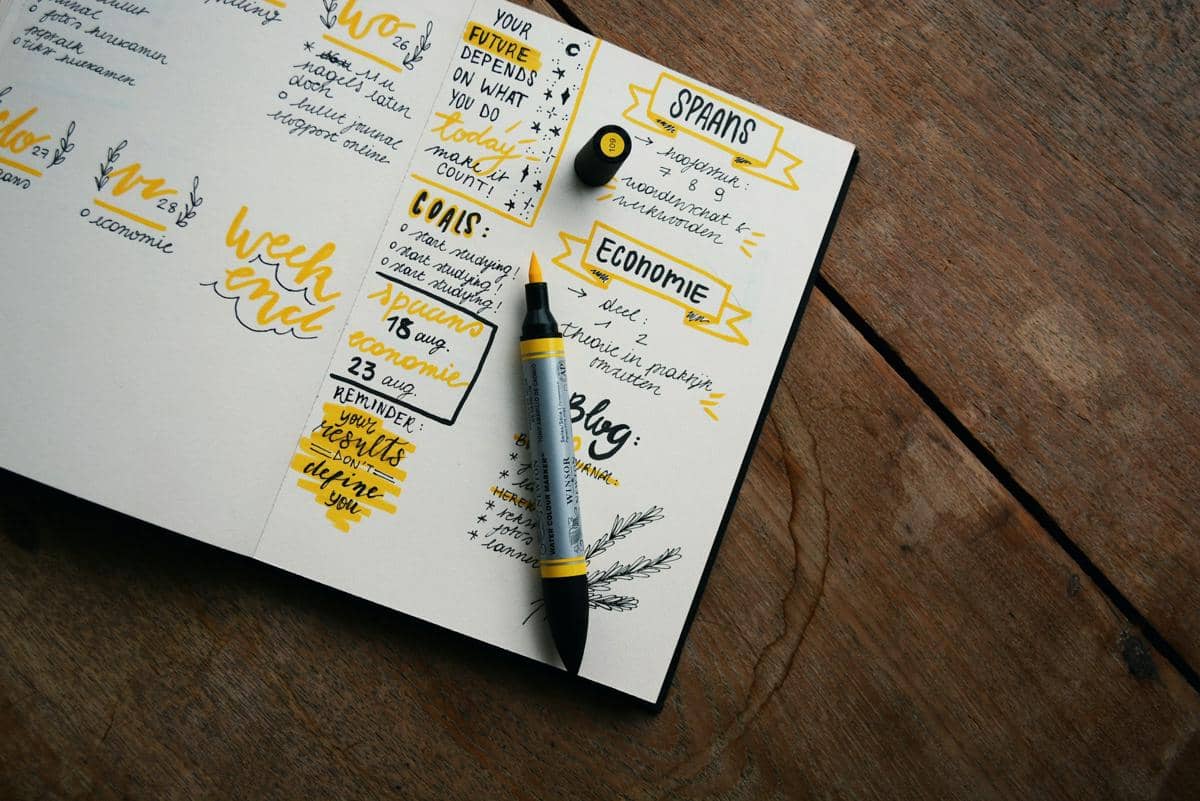 jots herexamen
peptalk
tekst herexamen
wo 26
* 11u
nagels laten
doen
o bullet journal
blogpost online
do 27
vr 28
o economie
week
end
YOUR
FUTURE
DEPENDS
ON WHAT
YOU DO
today
make it
COUNT!
GOALS:
o start studying!
o start studying!
o start studying!
spaans
18 aug.
economie
23 aug.
REMINDER:
your
results
DON'T
define
you
SPAANS
→ hoofdstuk:
7 8 9
woordenschat &
werkwoorden
ECONOMIE
→ deel:
1 2
theorie in praktijk
omzetten
Blog:
109
WATER COLOUR MARKER
WINSOR